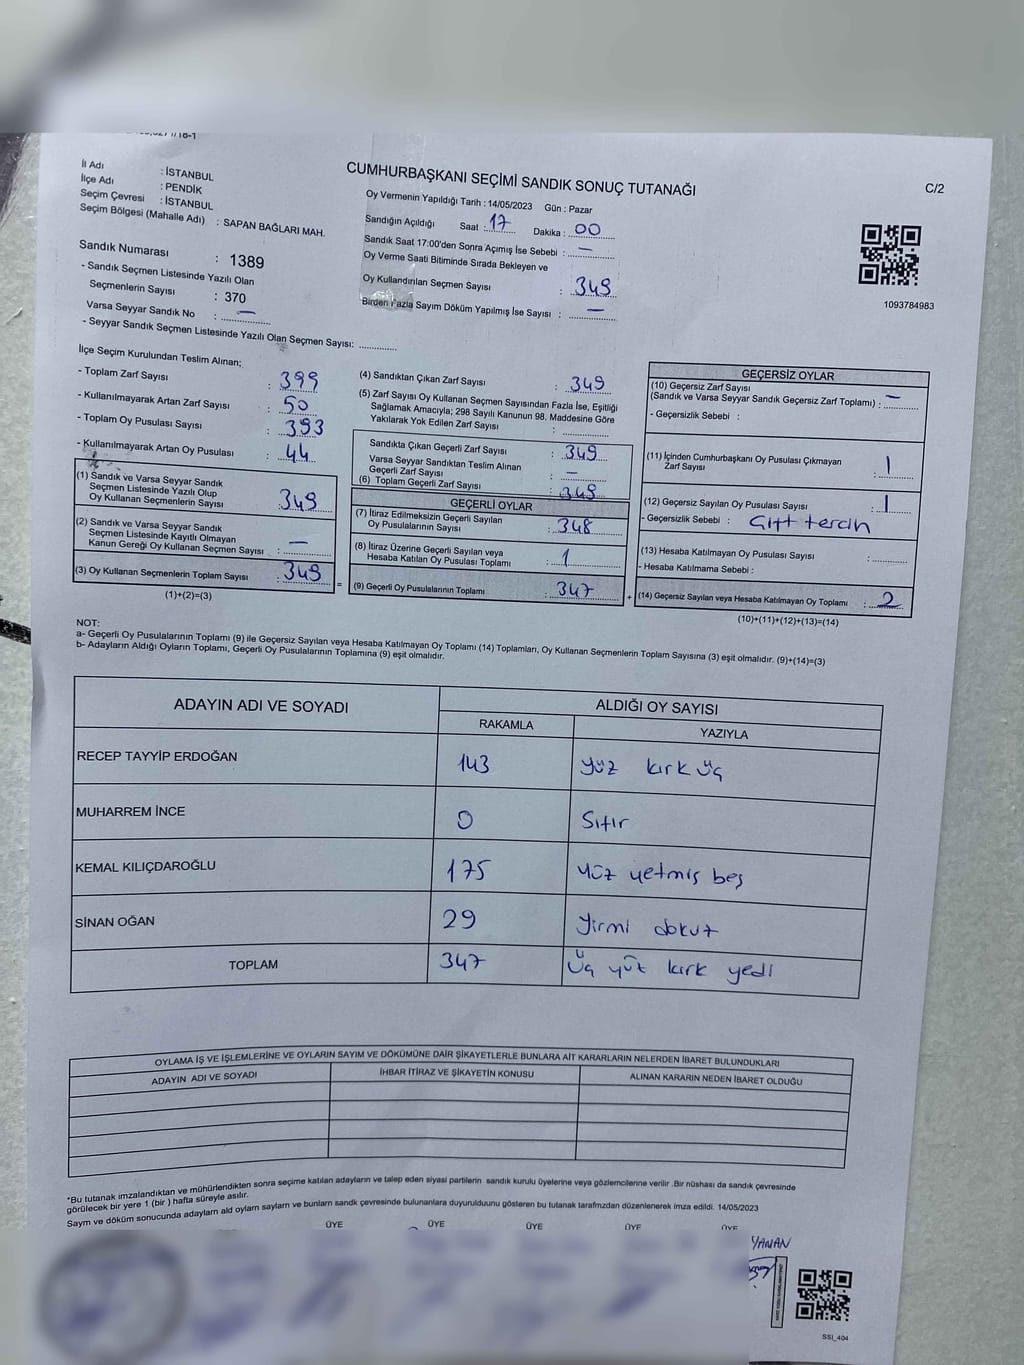 CUMHURBAŞKANI SEÇİMİ SANDIK SONUÇ TUTANAĞI
C/2
İl Adı : İSTANBUL
İlçe Adı : PENDİK
Seçim Çevresi : İSTANBUL
Seçim Bölgesi (Mahalle Adı) : SAPAN BAĞLARI MAH.
Sandık Numarası : 1389
- Sandık Seçmen Listesinde Yazılı Olan
Seçmenlerin Sayısı : 370
Varsa Seyyar Sandık No : —
- Seyyar Sandık Seçmen Listesinde Yazılı Olan Seçmen Sayısı: ............
Oy Vermenin Yapıldığı Tarih : 14/05/2023 Gün : Pazar
Sandığın Açıldığı Saat : 17 Dakika : 00
Sandık Saat 17:00'den Sonra Açımış İse Sebebi : —
Oy Verme Saati Bitiminde Sırada Bekleyen ve
Oy Kullandırılan Seçmen Sayısı : 349
Birden Fazla Sayım Döküm Yapılmış İse Sayısı : —
1093784983
İlçe Seçim Kurulundan Teslim Alınan;
- Toplam Zarf Sayısı : 399
- Kullanılmayarak Artan Zarf Sayısı : 50
- Toplam Oy Pusulası Sayısı : 393
- Kullanılmayarak Artan Oy Pusulası : 44
(1) Sandık ve Varsa Seyyar Sandık
Seçmen Listesinde Yazılı Olup
Oy Kullanan Seçmenlerin Sayısı : 349
(2) Sandık ve Varsa Seyyar Sandık
Seçmen Listesinde Kayıtlı Olmayan
Kanun Gereği Oy Kullanan Seçmen Sayısı : —
(3) Oy Kullanan Seçmenlerin Toplam Sayısı : 349 =
(1)+(2)=(3)
(4) Sandıktan Çıkan Zarf Sayısı : 349
(5) Zarf Sayısı Oy Kullanan Seçmen Sayısından Fazla İse, Eşitliği
Sağlamak Amacıyla; 298 Sayılı Kanunun 98. Maddesine Göre
Yakılarak Yok Edilen Zarf Sayısı : ............
Sandıkta Çıkan Geçerli Zarf Sayısı : 349
Varsa Seyyar Sandıktan Teslim Alınan
Geçerli Zarf Sayısı : —
(6) Toplam Geçerli Zarf Sayısı : 349
GEÇERLİ OYLAR
(7) İtiraz Edilmeksizin Geçerli Sayılan
Oy Pusulalarının Sayısı : 348
(8) İtiraz Üzerine Geçerli Sayılan veya
Hesaba Katılan Oy Pusulası Toplamı : 1
(9) Geçerli Oy Pusulalarının Toplamı : 347 +
GEÇERSİZ OYLAR
(10) Geçersiz Zarf Sayısı
(Sandık ve Varsa Seyyar Sandık Geçersiz Zarf Toplamı) : —
- Geçersizlik Sebebi :
(11) İçinden Cumhurbaşkanı Oy Pusulası Çıkmayan
Zarf Sayısı : 1
(12) Geçersiz Sayılan Oy Pusulası Sayısı : 1
- Geçersizlik Sebebi : Çift tercih
(13) Hesaba Katılmayan Oy Pusulası Sayısı : ............
- Hesaba Katılmama Sebebi :
(14) Geçersiz Sayılan veya Hesaba Katılmayan Oy Toplamı : 2
(10)+(11)+(12)+(13)=(14)
NOT:
a- Geçerli Oy Pusulalarının Toplamı (9) ile Geçersiz Sayılan veya Hesaba Katılmayan Oy Toplamı (14) Toplamları, Oy Kullanan Seçmenlerin Toplam Sayısına (3) eşit olmalıdır. (9)+(14)=(3)
b- Adayların Aldığı Oyların Toplamı, Geçerli Oy Pusulalarının Toplamına (9) eşit olmalıdır.
ADAYIN ADI VE SOYADI ALDIĞI OY SAYISI
RAKAMLA YAZIYLA
RECEP TAYYİP ERDOĞAN 143 yüz kırk üç
MUHARREM İNCE 0 Sıfır
KEMAL KILIÇDAROĞLU 175 yüz yetmiş beş
SİNAN OĞAN 29 Yirmi dokuz
TOPLAM 347 Üç yüz kırk yedi
OYLAMA İŞ VE İŞLEMLERİNE VE OYLARIN SAYIM VE DÖKÜMÜNE DAİR ŞİKAYETLERLE BUNLARA AİT KARARLARIN NELERDEN İBARET BULUNDUKLARI
ADAYIN ADI VE SOYADI İHBAR İTİRAZ VE ŞİKAYETİN KONUSU ALINAN KARARIN NEDEN İBARET OLDUĞU
*Bu tutanak imzalandıktan ve mühürlendikten sonra seçime katılan adayların ve talep eden siyasi partilerin sandık kurulu üyelerine veya gözlemcilerine verilir .Bir nüshası da sandık çevresinde
görülecek bir yere 1 (bir ) hafta süreyle asılır.
Saym ve döküm sonucunda adaylarn ald oylarn saylarn ve bunlarn sandk çevresinde bulunanlara duyurulduunu gösteren bu tutanak tarafmzdan düzenlenerek imza edildi. 14/05/2023
ÜYE ÜYE ÜYE ÜYE ÜYE
YANAN
SSI_404